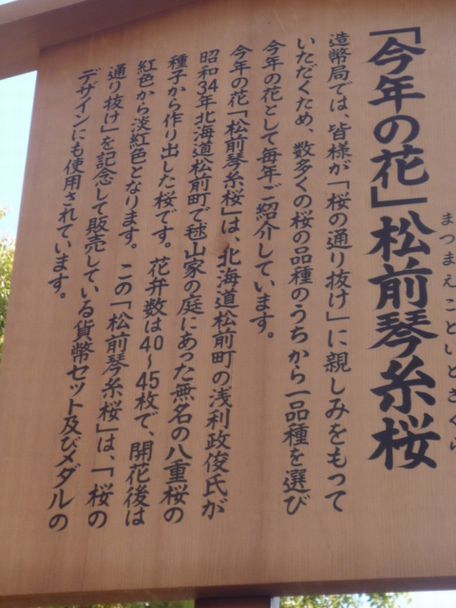 「今年の花」松前琴糸桜
まつまえことといとざくら
造幣局では、皆様が「桜の通り抜け」に親しみをもって
いただくため、数多くの桜の品種のうちから一品種を選び
今年の花として毎年ご紹介しています。
今年の花「松前琴糸桜」は、北海道松前町の浅利政俊氏が
昭和34年北海道松前町で毬山家の庭にあった無名の八重桜の
種子から作り出した桜です。花弁数は40〜45枚で、開花後は
紅色から淡紅色となります。この「松前琴糸桜」は、「桜の
通り抜け」を記念して販売している貨幣セット及びメダルの
デザインにも使用されています。